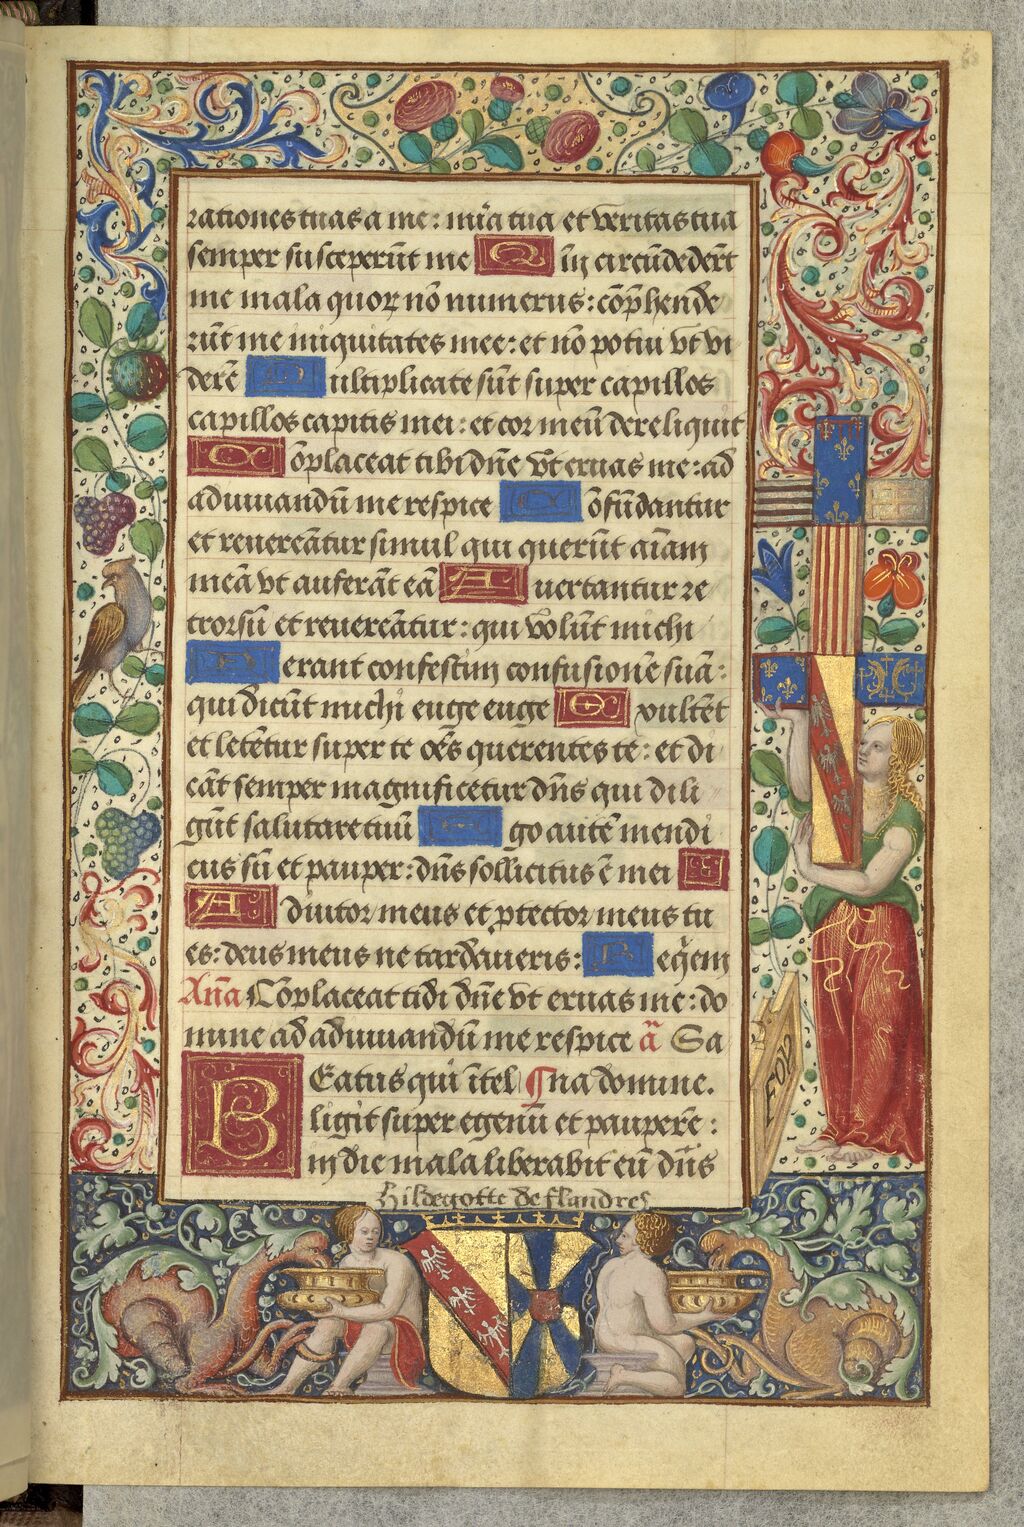 rationes tuas a me: mĩa tua et veritas tua
semper susceperũt me Qm̃ circũdedert
me mala quoꝝ nõ numerus: cõp̃hende
rũt me iniquitates mee: et nõ potui vt vi
derẽ Multiplicate sũt super capillos
capillos capitis mei: et cor meũ dereliquit
Cõplaceat tibi dñe vt eruas me: ad
adiuuandũ me respice Cõfũdantur
et reuereãtur simul qui querũt aĩam
meã vt auferãt eã Auertantur re
trorsũ et reuereãtur: qui volũt michi
Ferant confestim confusionẽ suã:
qui dicũt michi euge euge Exultẽt
et letẽtur super te oẽs querentes te: et di
cãt semper magnificetur dñs qui dili
gũt salutare tuũ Ego autẽ mendi
cus sũ et pauper: dñs sollicitus ẽ mei
Adiutor meus et ꝓtector meus tu
es: deus meus ne tardaueris: Reqem
Aña Cõplaceat tidi dñe vt eruas me: do
mine ad adiuuandũ me respice a Sa
BEatus qui ĩtel ¶na domine.
ligit super egenũ et pauperẽ:
in die mala liberabit eũ dñs
Hildegotte de flandres
FOY